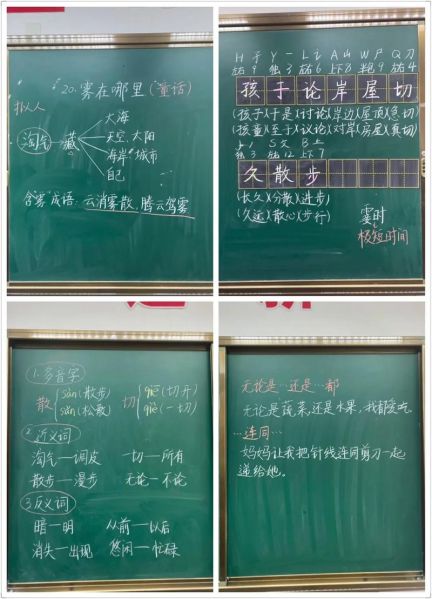 20.雾在哪里(童话)
拟人
淘气 藏
大海
天空.太阳
海岸.城市
自己
含"雾"成语:云消雾散,腾云驾雾
H 子 Y 一 L 讠 A 山 W 尸 Q 刀
右9 独3 右6 上下8 半包9 右4
孩于论岸屋切
(孩子)(于是)(讨论)(岸边)(屋顶)(急切)
(孩童)(至于)(议论)(对岸)(房屋)(真切)
独3 右12 上下7
久散步
(长久)(分散)(进步)
(久远)(散心)(步行)
霎时
极短时间
1.多音字
散 sàn(散步) sǎn(松散) 切 qiē(切开) qiè(一切)
2.近义词
淘气—调皮 一切—所有
散步—漫步 无论—不论
3.反义词
暗—明 从前—以后
消失—出现 悠闲—忙碌
无论是…还是…都
无论是蔬菜,还是水果,我都爱吃。
…连同…
妈妈让我把针线连同剪刀一起
递给她。